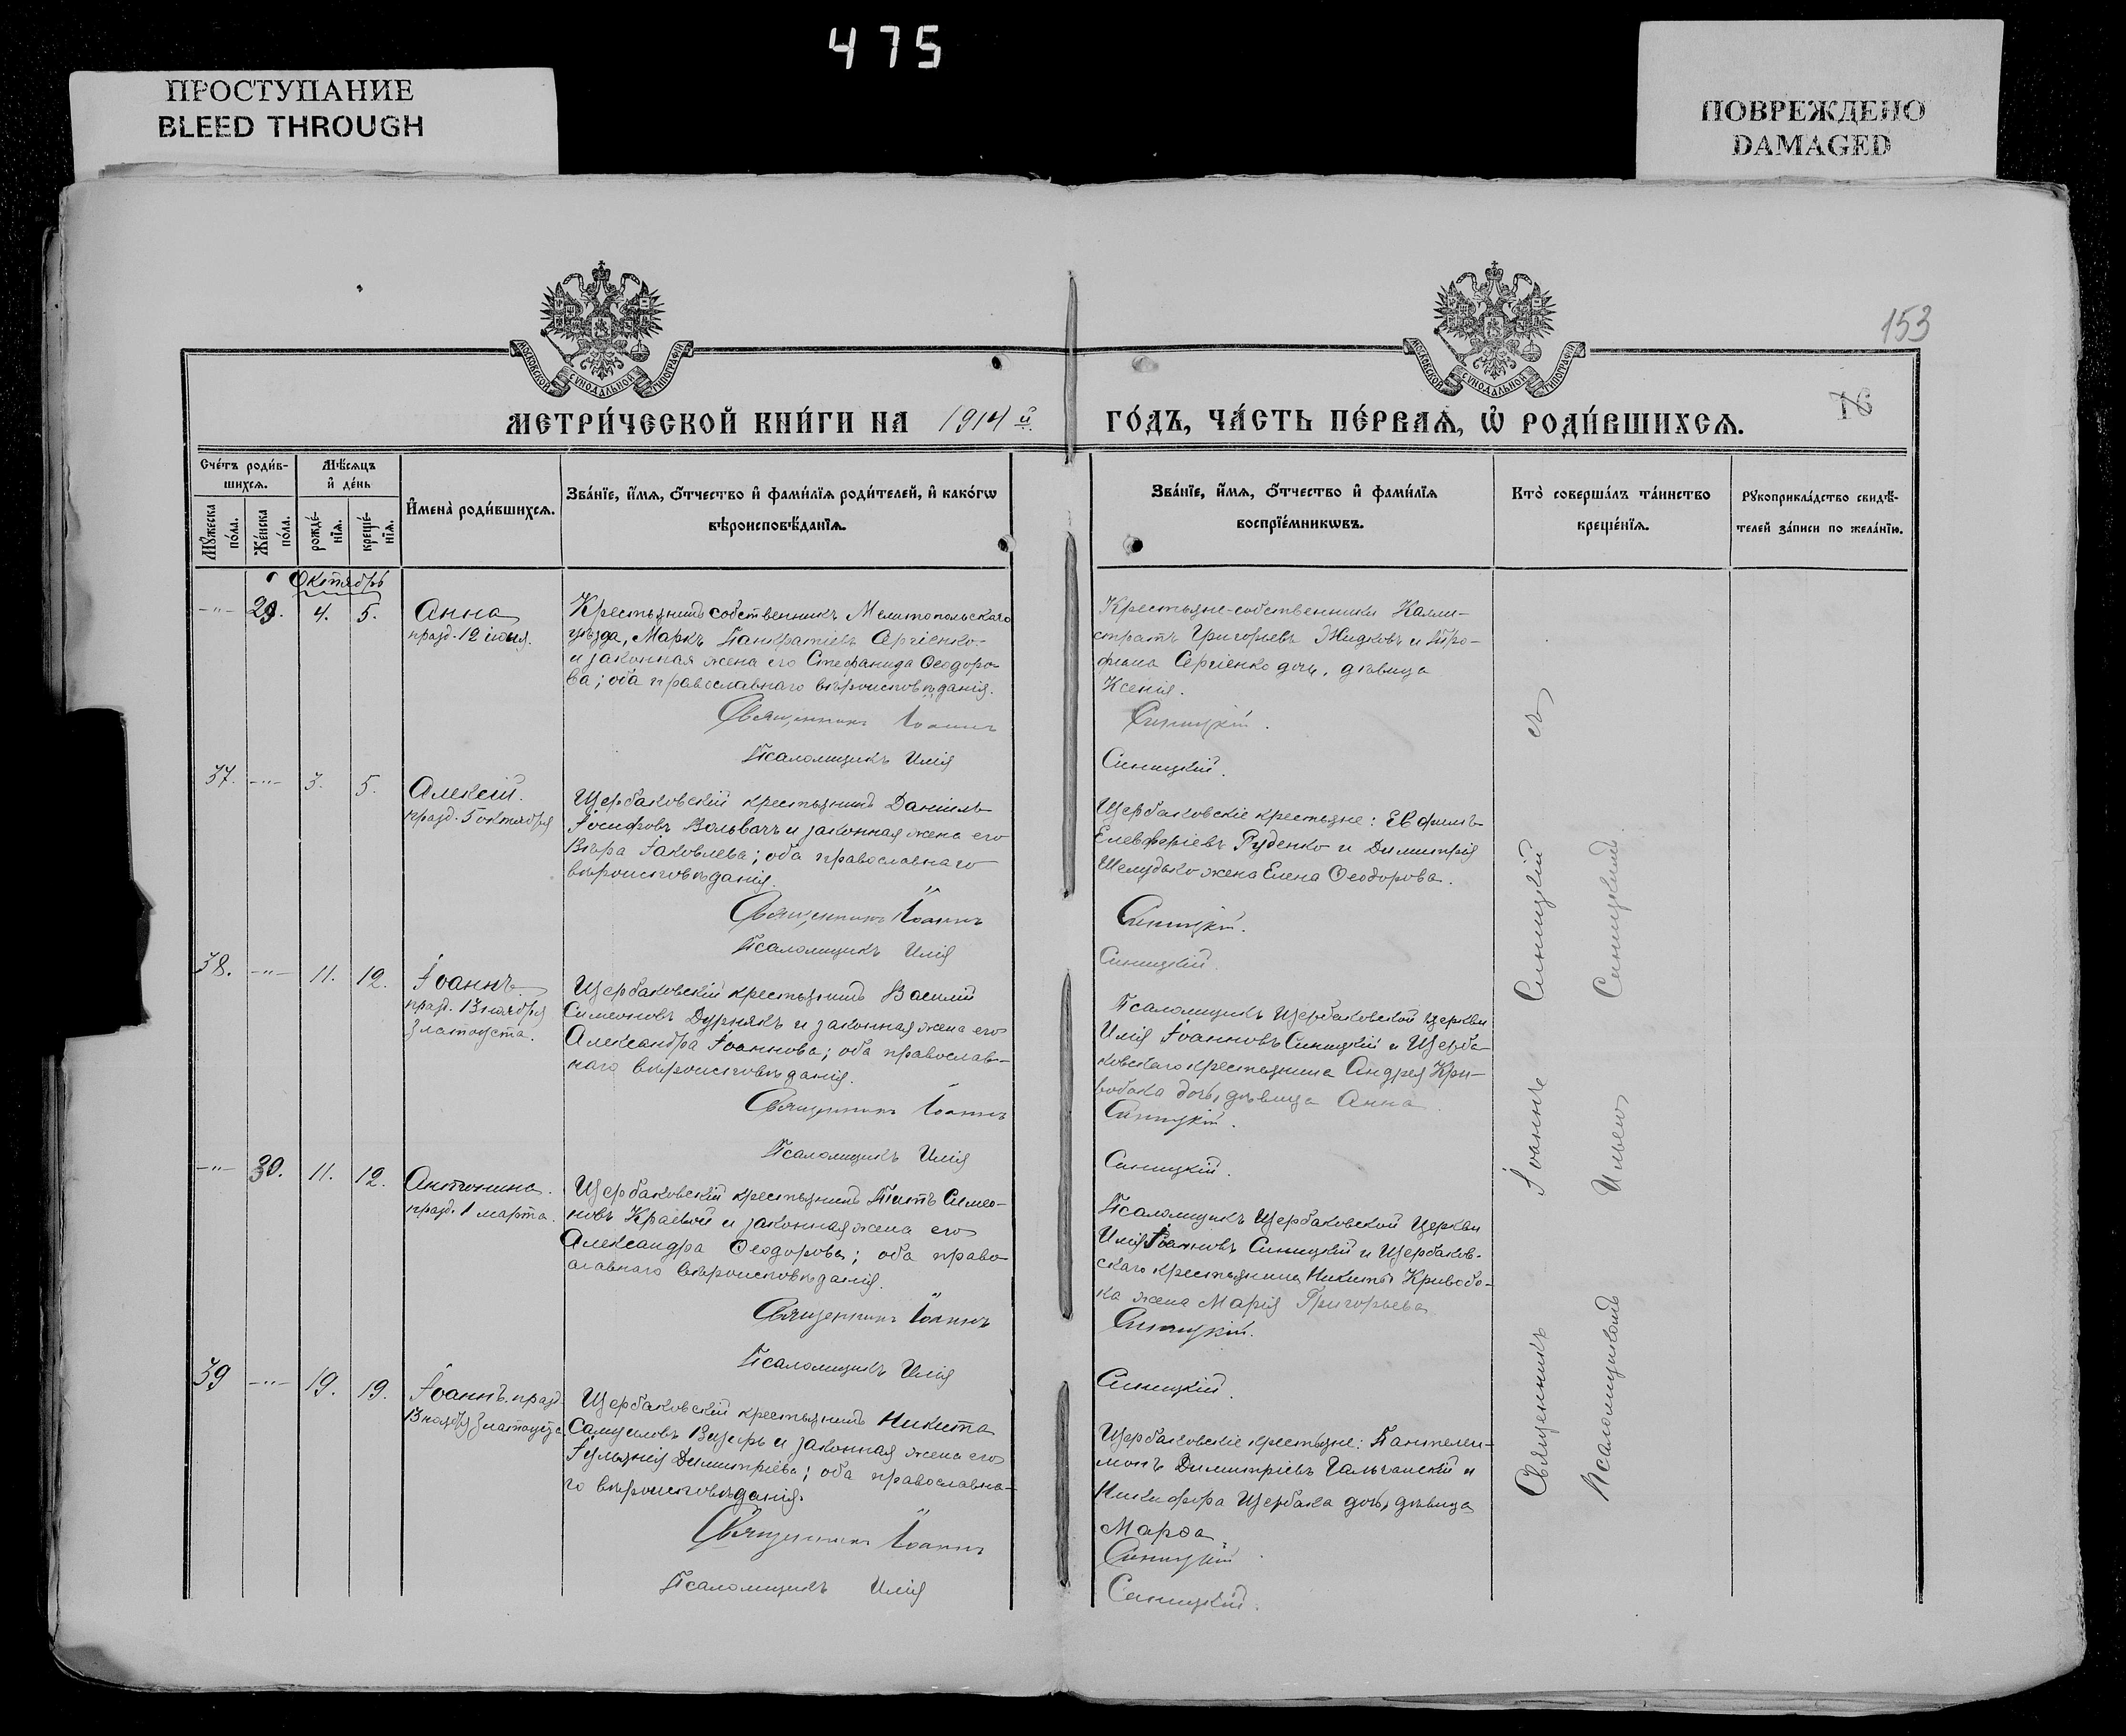 475
ПРОСТУПАНИЕ
BLEED THROUGH
ПОВРЕЖДЕНО
DAMAGED
153
16
МОСКОВСКОЙ СѴНОДАЛЬНОЙ ТИПОГРАФІИ
МОСКОВСКОЙ СѴНОДАЛЬНОЙ ТИПОГРАФІИ
МЕТРИ́ЧЕСКОЙ КНИ́ГИ НА 1914 й
ГО́ДЪ, ЧА́СТЬ ПЕ́РВАѦ, Ѡ҆ РОДИ́ВШИХСѦ.
Сче́тъ роди́в-
шихсѧ.
Мꙋжеска
по́ла.
Же́нска
по́ла.
Мѣ́сѧцъ
и҆ де́нь
рожде́-
нїѧ.
креще́-
нїѧ.
И҆мена̀ роди́вшихсѧ.
Зва́нїе, и҆́мѧ, ѻ҆́тчество и҆ фами́лїѧ роди́телей, и҆ како́гѡ
вѣроисповѣ́данїѧ.
Зва́нїе, и҆́мѧ, ѻ҆́тчество и҆ фами́лїѧ
воспрїе́мникѡвъ.
Кто̀ соверша́лъ та́инство
креще́нїѧ.
Рꙋкоприкла́дство свидѣ́-
телей за́писи по жела́нїю.
Октябрь
-"- 29. 4. 5.
Анна
празд. 12 іюня.
Крестьянинъ собственникъ Мелитопольскаго
уѣзда, Маркъ Панкратіевъ Сергіенко
и законная жена его Стефанида Ѳеодоро-
ва; оба православнаго вѣроисповѣданія.
Священникъ Іоаннъ
Псаломщикъ Илія
Крестьяне-собственники Калли-
стратъ Григорьевъ Жидковъ и Тро-
фима Сергіенко дочь, дѣвица
Ксенія.
Синицкій.
Синицкій.
37. -"- 3. 5.
Алексій.
празд. 5 октября
Щербаковскій крестьянинъ Даніилъ
Іосифовъ Вольвачъ и законная жена его
Вѣра Іаковлева; оба православнаго
вѣроисповѣданія.
Священникъ Іоаннъ
Псаломщикъ Илія
Щербаковскіе крестьяне: Евфимъ
Елевферіевъ Руденко и Димитрія
Шелудько жена Елена Ѳеодорова.
Синицкій.
Синицкій.
38. -"- 11. 12.
Іоаннъ
празд. 13 ноября
Златоуста.
Щербаковскій крестьянинъ Василій
Симеоновъ Дурнякъ и законная жена его
Александра Іоаннова; оба православ-
наго вѣроисповѣданія.
Священникъ Іоаннъ
Псаломщикъ Илія
Псаломщикъ Щербаковской церкви
Илія Іоанновъ Синицкій и Щерба-
ковскаго крестьянина Андрея Кри-
вобока дочь, дѣвица Анна
Синицкій.
Синицкій.
-"- 30. 11. 12.
Антонина.
празд. 1 марта.
Щербаковскій крестьянинъ Титъ Симео-
новъ Краевой и законная жена его
Александра Ѳеодорова; оба право-
славнаго вѣроисповѣданія.
Священникъ Іоаннъ
Псаломщикъ Илія
Псаломщикъ Щербаковской Церкви
Илія Іоанновъ Синицкій и Щербаков-
скаго крестьянина Никиты Кривобо-
ка жена Марія Григорьева
Синицкій.
Синицкій.
39 -"- 19. 19.
Іоаннъ. празд.
13 ноября Златоуста
Щербаковскій крестьянинъ Никита
Самуиловъ и законная жена его
Іуліанія Димитріева; оба православна-
го вѣроисповѣданія.
Священникъ Іоаннъ
Псаломщикъ Илія
Щербаковскіе крестьяне: Пантелеи-
монъ Димитріевъ Гальчанскій и
Никифора Щербака дочь, дѣвица
Марѳа
Синицкій
Синицкій.
Священникъ Іоаннъ Синицкій съ
Псаломщикомъ Ильею Синицкимъ.